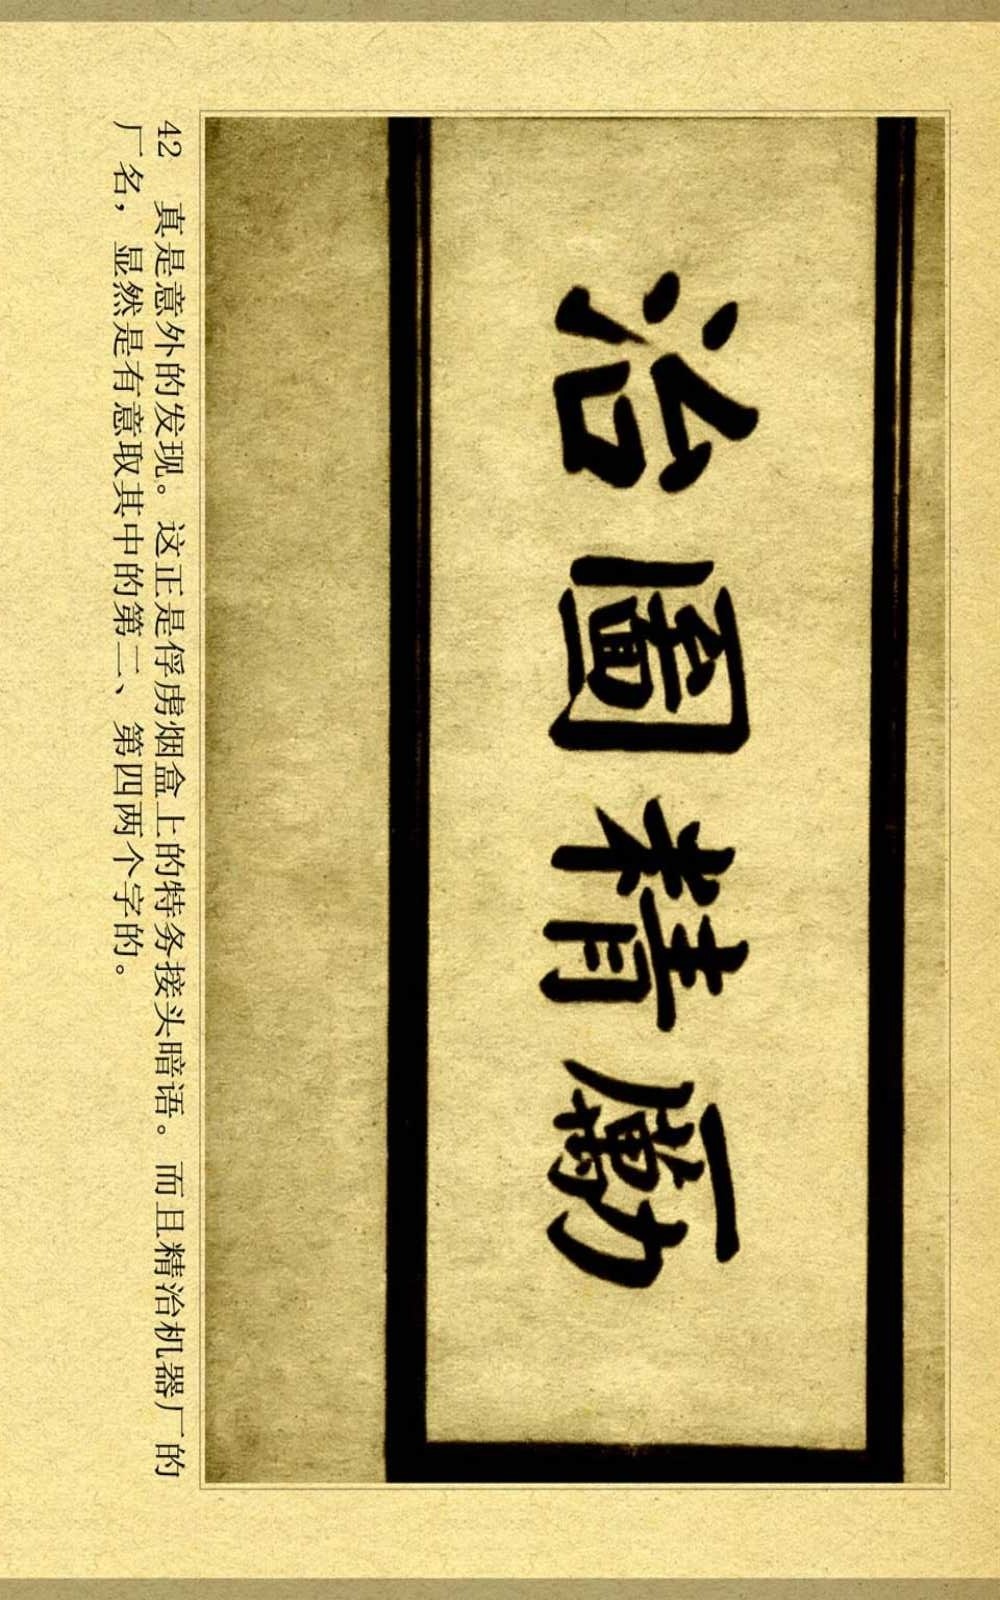 勵精圖治
42 真是意外的发现。这正是俘虏烟盒上的特务接头暗语。而且精治机器厂的
厂名，显然是有意取其中的第二、第四两个字的。